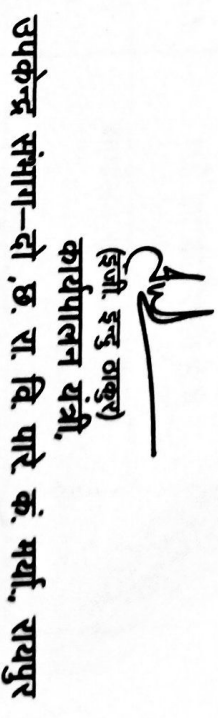 (इंजी. इन्दु ठाकुर)
कार्यपालन यंत्री,
उपकेन्द्र संभाग-दो,छ. रा. वि. पारे. कं. मर्या., रायपुर